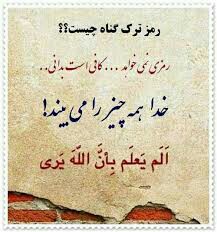 رمز ترک گناه چیست؟؟
رمزی نمی خواهد ... کافی است بدانی ..
خدا همه چیز را می بیند!
اَلَم یَعلَم بِاَنَّ اللّهَ یَری